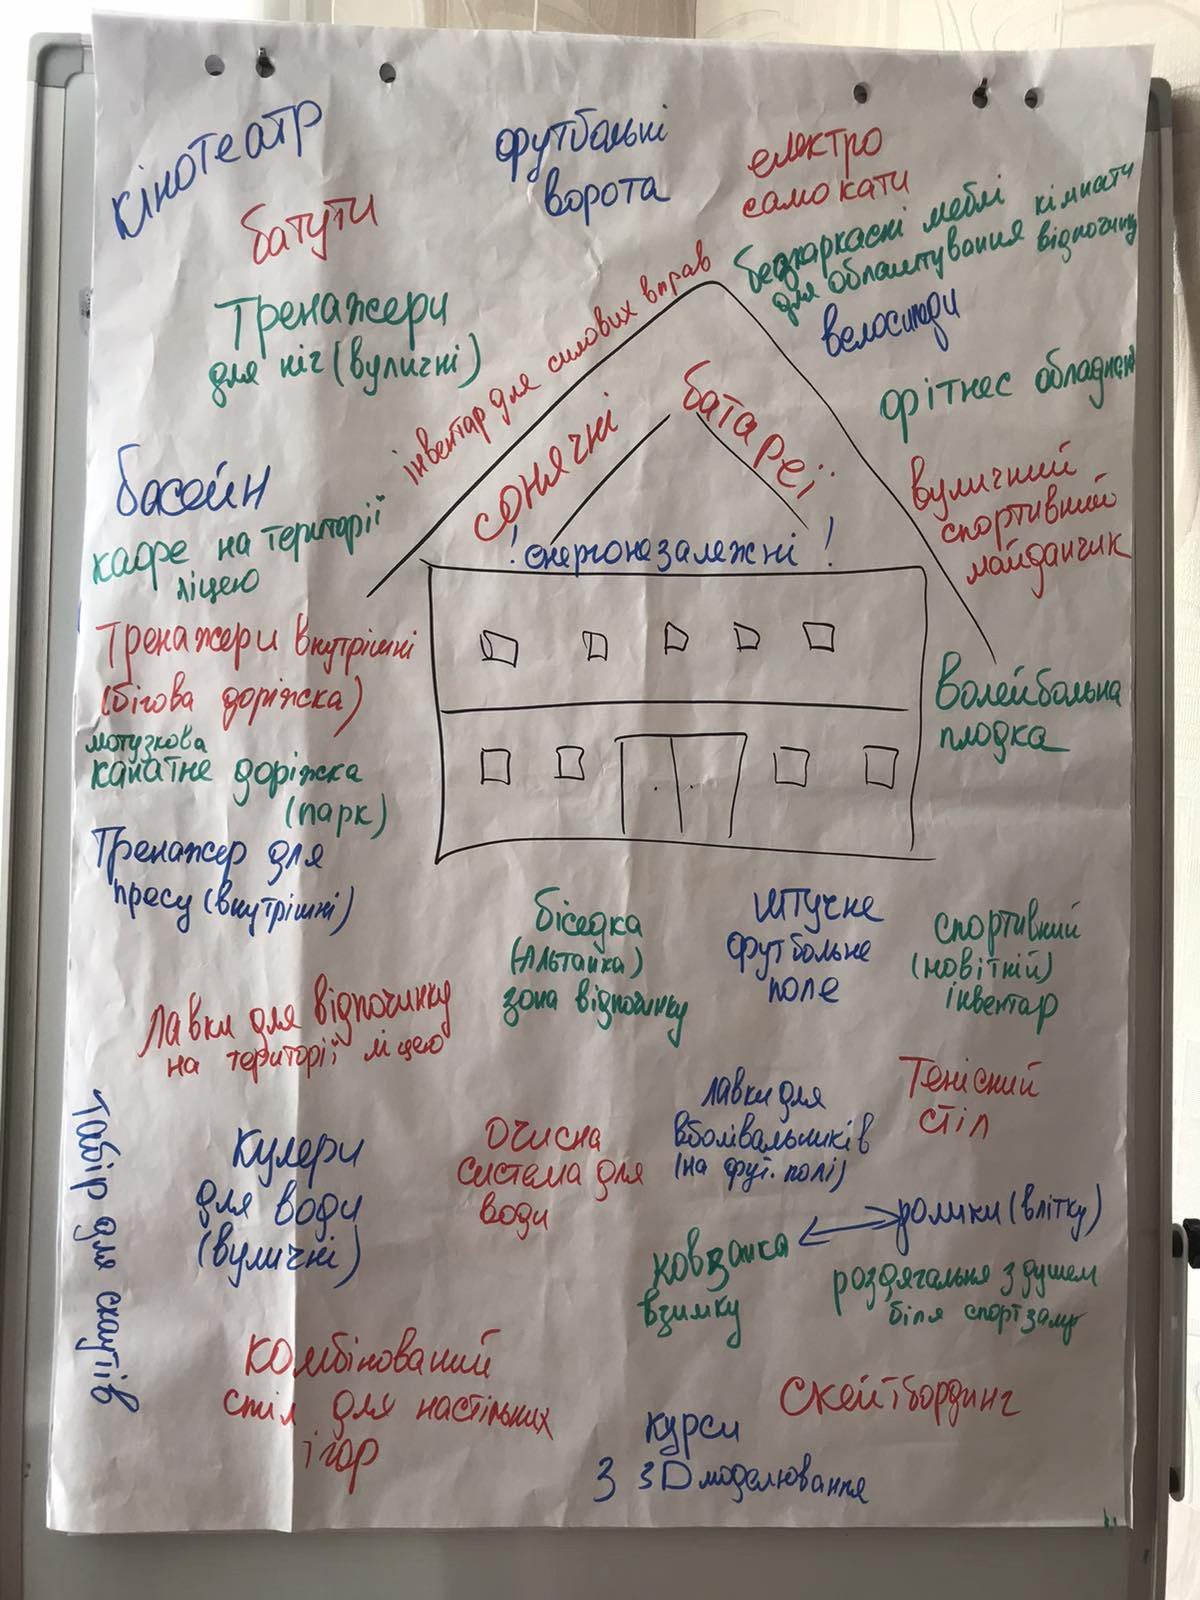 кінотеатр
футбольні
ворота
електро
самокати
батути
безкаркасні меблі
для облаштування кімнати
відпочинку
Тренажери
для ніг (вуличні)
інвентар для силових вправ
велосипеди
фітнес обладнан
сонячні
батареї
! енергонезалежні !
басейн
кафе на території
ліцею
вуличний
спортивний
майданчик
Тренажери внутрішні
(бігова доріжка)
мотузкова
канатне доріжка
(парк)
Волейбольна
плодка
Тренажер для
пресу (внутрішні)
бісєдка
(Альтанка)
зона відпочинку
штучне
футбольне
поле
спортивний
(новітній)
інвентар
Лавки для відпочинку
на території ліцею
Тенісний
стіл
лавки для
вболівальників
(на фут. полі)
Очисна
система для
води
Кулери
для води
(вуличні)
Табір для скаутів
ролики (влітку)
ковзанка
взимку
роздягальня з душем
біля спортзалу
Комбінований
стіл для настільних
ігор
скейтбординг
курси
з 3D моделювання